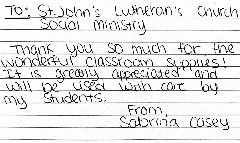 To: St. John's Lutheran's Church
Social Ministry
Thank you so much for the
wonderful classroom supplies!
It is greatly appreciated and
will be used with care by
my students.
From,
Sabrina Casey